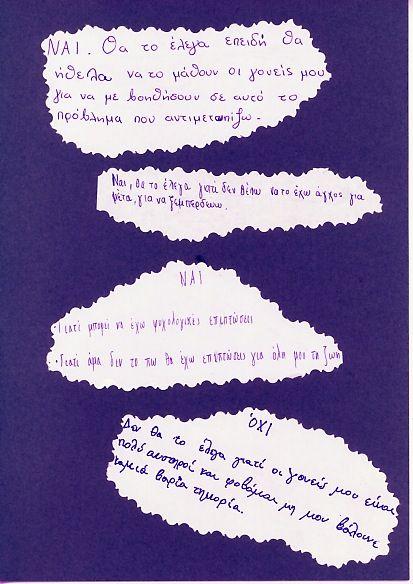 ΝΑΙ. Θα το έλεγα επειδή θα
ήθελα να το μάθουν οι γονείς μου
για να με βοηθήσουν σε αυτό το
πρόβλημα που αντιμετωπίζω.
Ναι, θα το έλεγα γιατί δεν θέλω να το έχω άγχος για
μετα, για να ξεμπερδευω.
ΝΑΙ
·Γιατί μπορεί να έχω ψυχολογικές επιπτώσεις
·Γιατί άμα δεν το πω θα έχω επιπτώσεις για όλη μου τη ζωη
ΌΧΙ
Δεν θα το έλεγα γιατί οι γονείς μου είναι
πολύ αυστηροί και φοβάμαι μη μου βάλουνε
καμιά βαρία τιμορία.